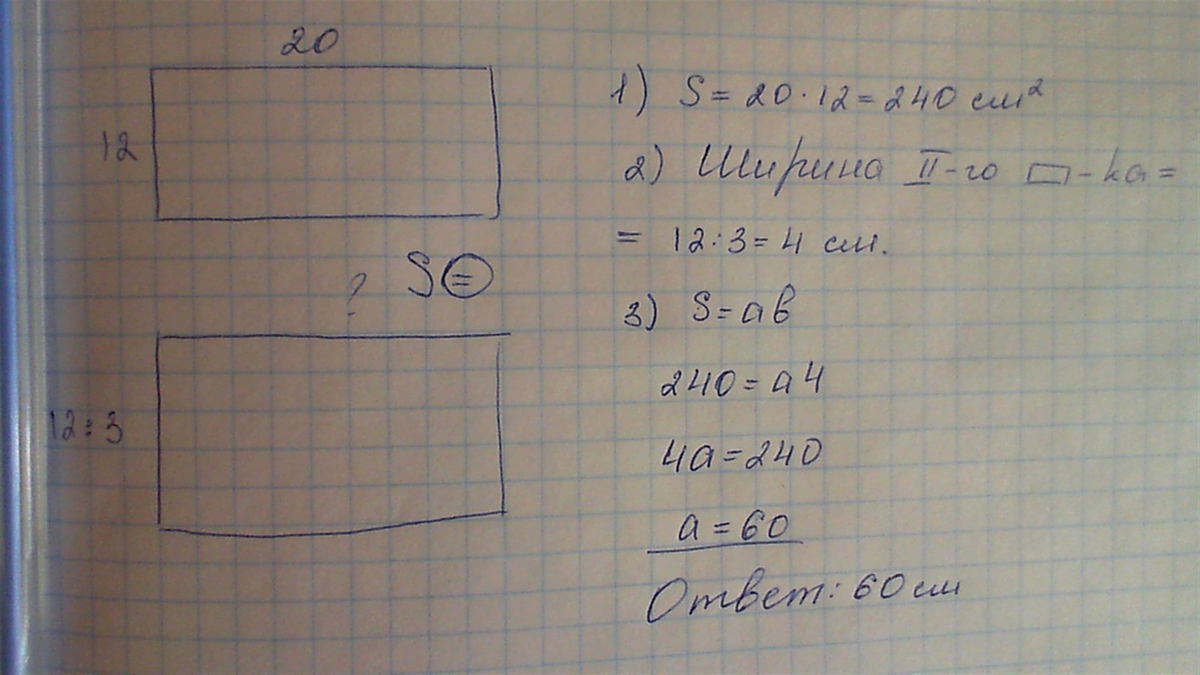 20
12
? S =
12 : 3
1) S = 20 · 12 = 240 см²
2) Ширина II-го ▭-ка =
= 12 : 3 = 4 см.
3) S = ав
240 = а4
4а = 240
а = 60
Ответ: 60 см